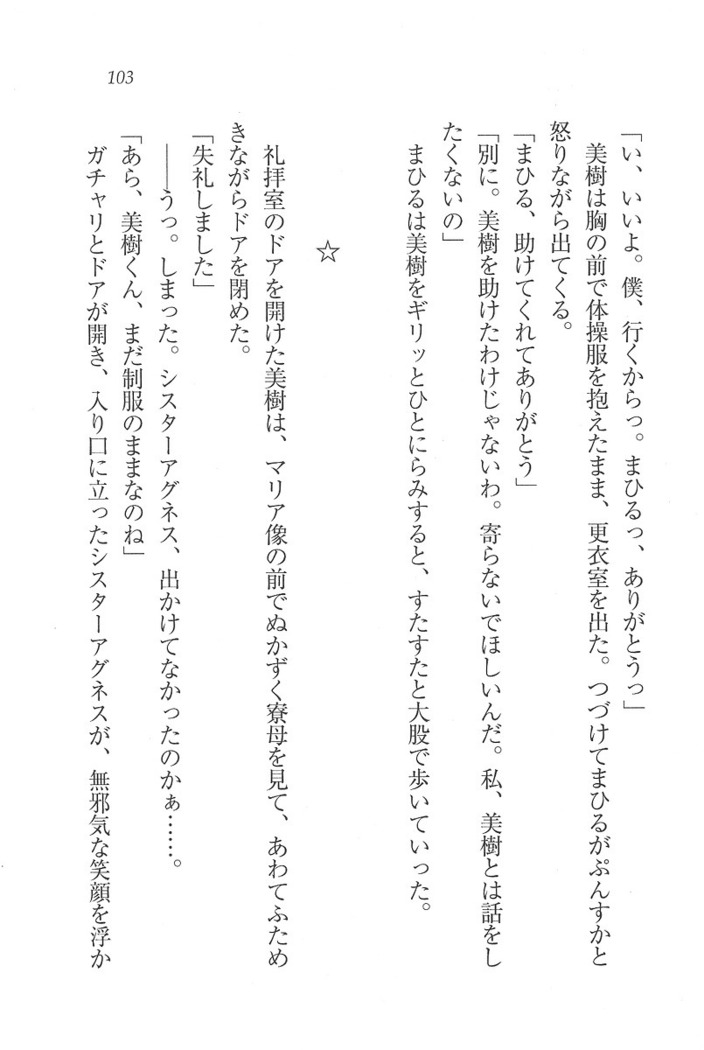 103
「い、いいよ。僕、行くからっ。まひるっ、ありがとうっ」
美樹は胸の前で体操服を抱えたまま、更衣室を出た。つづけてまひるがぷんすかと
怒りながら出てくる。
「まひる、助けてくれてありがとう」
「別に。美樹を助けたわけじゃないわ。寄らないでほしいんだ。私、美樹とは話をし
たくないの」
まひるは美樹をギリッとひとにらみすると、すたすたと大股で歩いていった。
☆
礼拝室のドアを開けた美樹は、マリア像の前でぬかずく寮母を見て、あわてふため
きながらドアを閉めた。
「失礼しました」
――うっ。しまった。シスターアグネス、出かけてなかったのかぁ……。
「あら、美樹くん、まだ制服のままなのね」
ガチャリとドアが開き、入り口に立ったシスターアグネスが、無邪気な笑顔を浮か